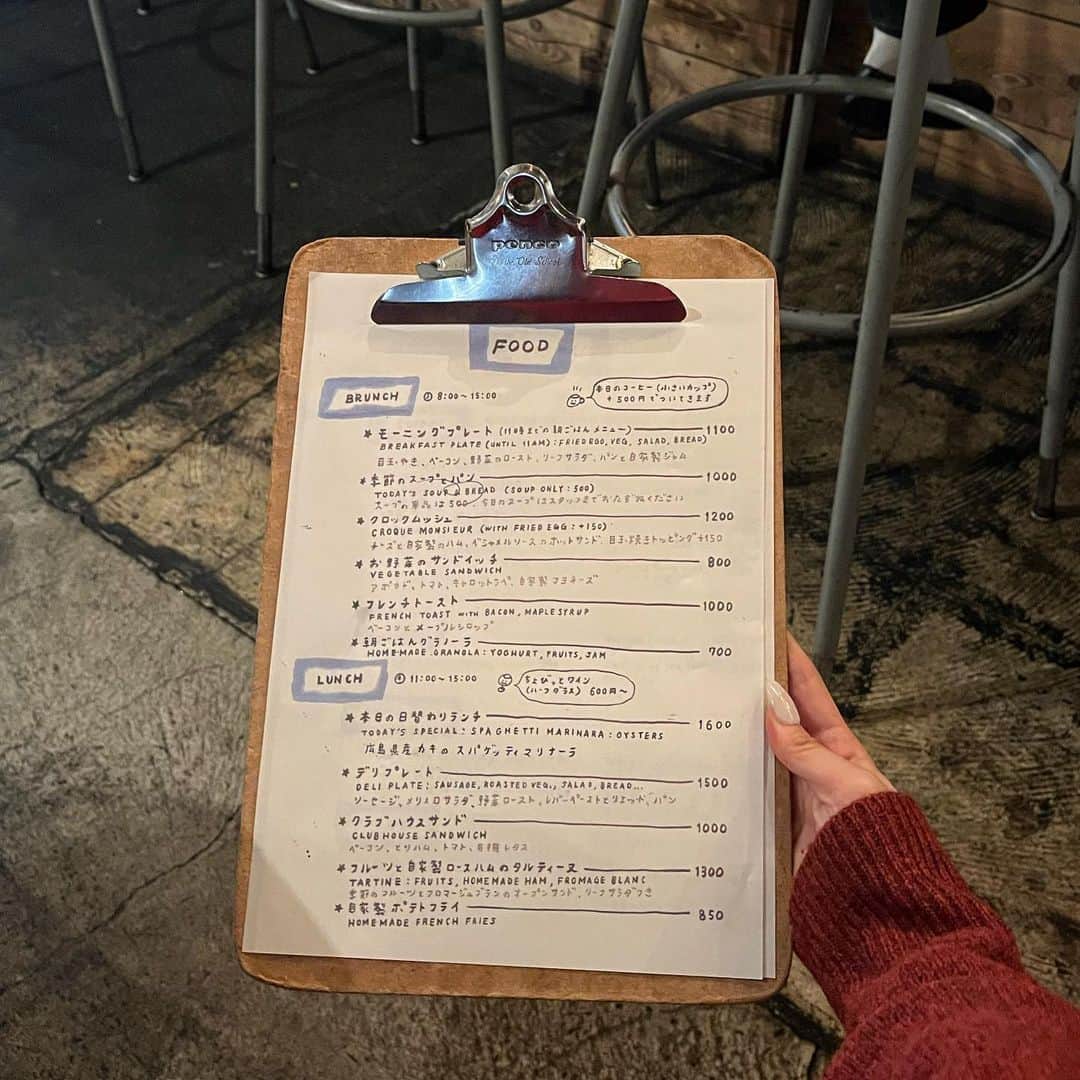 penco
FOOD
BRUNCH 8:00〜15:00
本日のコーヒー(小さいカップ)
+500円でついてきます
★モーニングプレート(11時までの朝ごはんメニュー) 1100
BREAKFAST PLATE (UNTIL 11AM): FRIED EGG, VEG, SALAD, BREAD)
目玉やき、ベーコン、野菜のロースト、リーフサラダ、パンと自家製ジャム
★季節のスープとパン 1000
TODAY'S SOUP & BREAD (SOUP ONLY: 500)
スープの単品は500、今日のスープはスタッフまでおたずねください
★クロックムッシュ 1200
CROQUE MONSIEUR (WITH FRIED EGG: +150)
チーズと自家製のハム、ベシャメルソースのホットサンド、目玉焼きトッピング+150
★お野菜のサンドイッチ 800
VEGETABLE SANDWICH
アボカド、トマト、キャロットラペ、自家製マヨネーズ
★フレンチトースト 1000
FRENCH TOAST WITH BACON, MAPLE SYRUP
ベーコンとメープルシロップ
★朝ごはんグラノーラ 700
HOMEMADE GRANOLA: YOGHURT, FRUITS, JAM
LUNCH 11:00〜15:00
ちょびっとワイン
(ハーフグラス) 600円〜
★本日の日替わりランチ 1600
TODAY'S SPECIAL: SPAGHETTI MARINARA: OYSTERS
広島県産カキのスパゲッティマリナーラ
★デリプレート 1500
DELI PLATE: SAUSAGE, ROASTED VEG., SALAD, BREAD...
ソーセージ、メリメロサラダ、野菜ロースト、レバーペーストとリエット、パン
★クラブハウスサンド 1000
CLUBHOUSE SANDWICH
ベーコン、とりハム、トマト、有機レタス
★フルーツと自家製ロースハムのタルティーヌ 1300
TARTINE: FRUITS, HOMEMADE HAM, FROMAGE BLANC
季節のフルーツとフロマージュブランのオープンサンド、リーフサラダつき
★自家製ポテトフライ 850
HOMEMADE FRENCH FRIES